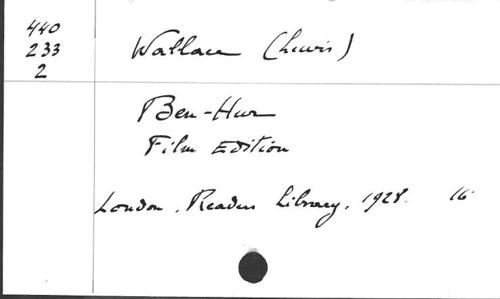 440
233
2
Wallace (Lewis)
Ben-Hur
Film Edition
London, Readers Library, 1928. 16°